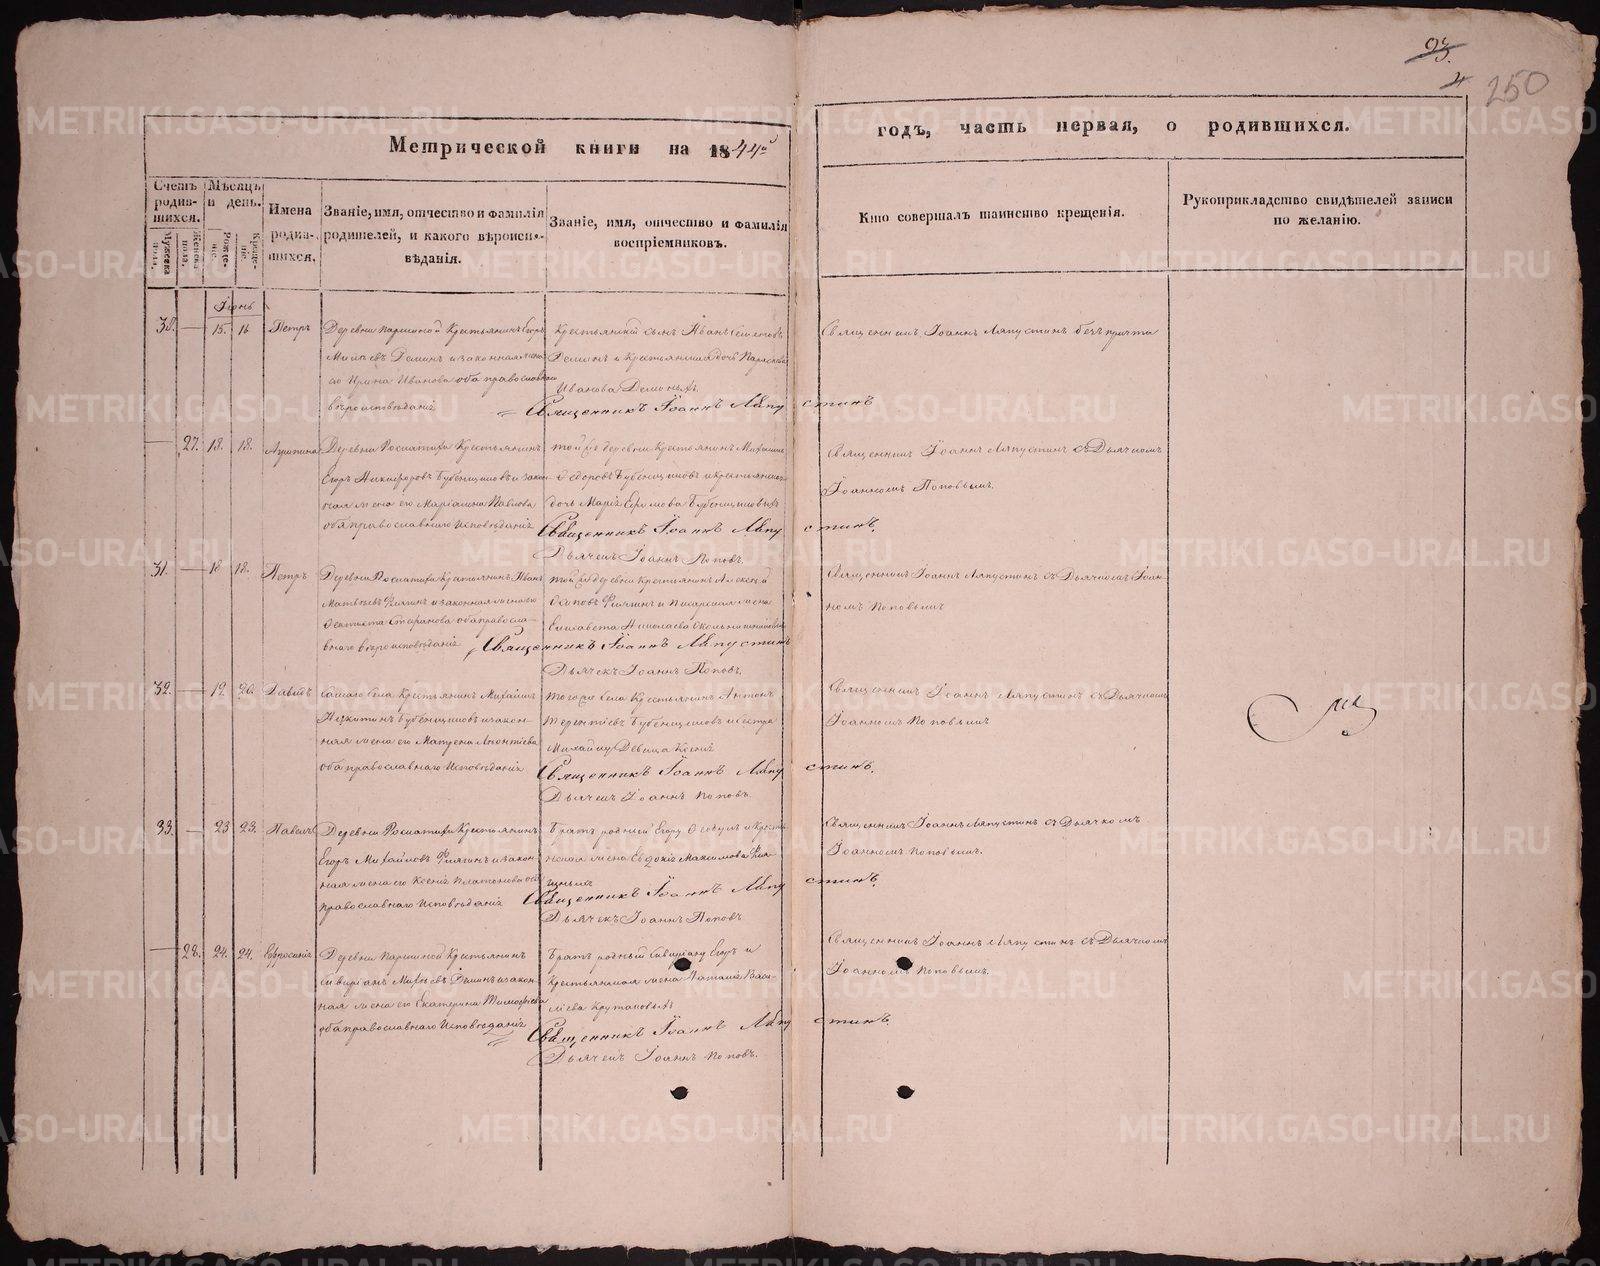 93.
4
250
Метрической книги на 1844й
годъ, часть первая, о родившихся.
Счетъ родив-
шихся.
Мужеска пола.
Женска пола.
Мѣсяцъ
и день.
Рожде-
ніе.
Креще-
ніе.
Имена
родив-
шихся.
Званіе, имя, отчество и фамилія
родителей, и какого вѣроиспо-
вѣданія.
Званіе, имя, отчество и фамилія
воспріемниковъ.
Кто совершалъ таинство крещенія.
Рукоприкладство свидѣтелей записи
по желанію.
Іюнь
30. — 15. 16 Петръ
Деревни Крестьянинъ Егоръ
Демин и законная жена
его Ирина Иванова оба православнаго
вѣроисповѣданія
Крестьянскій сынъ Иванъ
Деминъ и Крестьянская дочь Параскева
Иванова Деминыхъ
Священникъ Іоаннъ Ляпустинъ
Священникъ Іоаннъ Ляпустинъ безъ причта
— 27. 18. 18. Агрипина
Деревни Крестьянинъ
Егоръ Никифоровъ Бубенщиковъ и закон
ная жена его Маріамна Павлова
оба православнаго исповѣданія
той же деревни Крестьянинъ Михаилъ
Ѳедоровъ Бубенщиковъ и крестьянская
дочь Марія Бубенщиковыхъ
Священникъ Іоаннъ Ляпустинъ.
Дьячекъ Іоаннъ Поповъ.
Священникъ Іоаннъ Ляпустинъ съ Дьячкомъ
Іоанномъ Поповымъ.
31. — 18 18. Петръ
Деревни Крестьянинъ Иванъ
Матвѣевъ и законная жена его
Стефанова оба правосла-
внаго вѣроисповѣданія
той же деревни Крестьянинъ Алексѣй
Осиповъ и жена
Елисавета Николаева
Священникъ Іоаннъ Ляпустинъ
Дьячекъ Іоаннъ Поповъ.
Священникъ Іоаннъ Ляпустинъ съ Дьячкомъ Іоан-
номъ Поповымъ
32. — 19. 20. Давидъ
сего села Крестьянинъ Михаилъ
Никитинъ Бубенщиковъ и закон-
ная жена его Матрена Леонтіева
оба православнаго Исповѣданія
того же села Крестьянинъ Антонъ
Терентіевъ Бубенщиковъ и сестра
Михаилу Девица Ксенія
Священникъ Іоаннъ Ляпустинъ.
Дьячекъ Іоаннъ Поповъ.
Священникъ Іоаннъ Ляпустинъ съ Дьячкомъ
Іоанномъ Поповымъ
33. — 23 23. Павелъ
Деревни Крестьянинъ
Егоръ Михайловъ и закон-
ная жена его Ксенія Платонова оба
православнаго исповѣданія
Братъ родной Егору и Кресть-
янская жена Евдокія Максимова
Священникъ Іоаннъ Ляпустинъ.
Дьячекъ Іоаннъ Поповъ
Священникъ Іоаннъ Ляпустинъ съ Дьячкомъ
Іоанномъ Поповымъ.
— 28. 24. 24. Ефросинія
Деревни Крестьянинъ
Деминъ и закон-
ная жена его Екатерина Тимофѣева
оба православнаго Исповѣданія
Братъ родный Егоръ и
Крестьянская жена Наталья Васи-
ліева
Священникъ Іоаннъ Ляпустинъ.
Дьячекъ Іоаннъ Поповъ.
Священникъ Іоаннъ Ляпустинъ съ Дьячкомъ
Іоанномъ Поповымъ.
METRIKI.GASO-URAL.RU